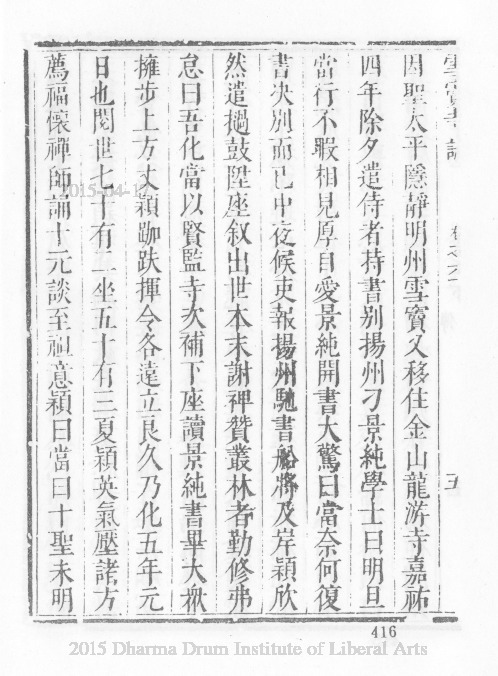 雪竇寺誌　卷之六　五
因聖太平隱靜明州雪竇又移住金山龍游寺嘉祐
四年除夕遣侍者持書別揚州刁景純學士曰明旦
當行不暇相見厚自愛景純開書大驚曰當奈何復
書決別而已中夜候吏報揚州馳書船將及岸穎欣
然遣撾鼓陞座敘出世本末謝裨贊叢林者勤修弗
怠曰吾化當以賢監寺次補下座讀景純書畢大衆
擁步上方丈穎跏趺揮令各遠立良久乃化五年元
日也閱世七十有二坐五十有三夏穎英氣壓諸方
薦福懷禪師誦十元談至祖意穎曰當曰十聖未明
416
2015-04-1
2015 Dharma Drum Institute of Liberal Arts